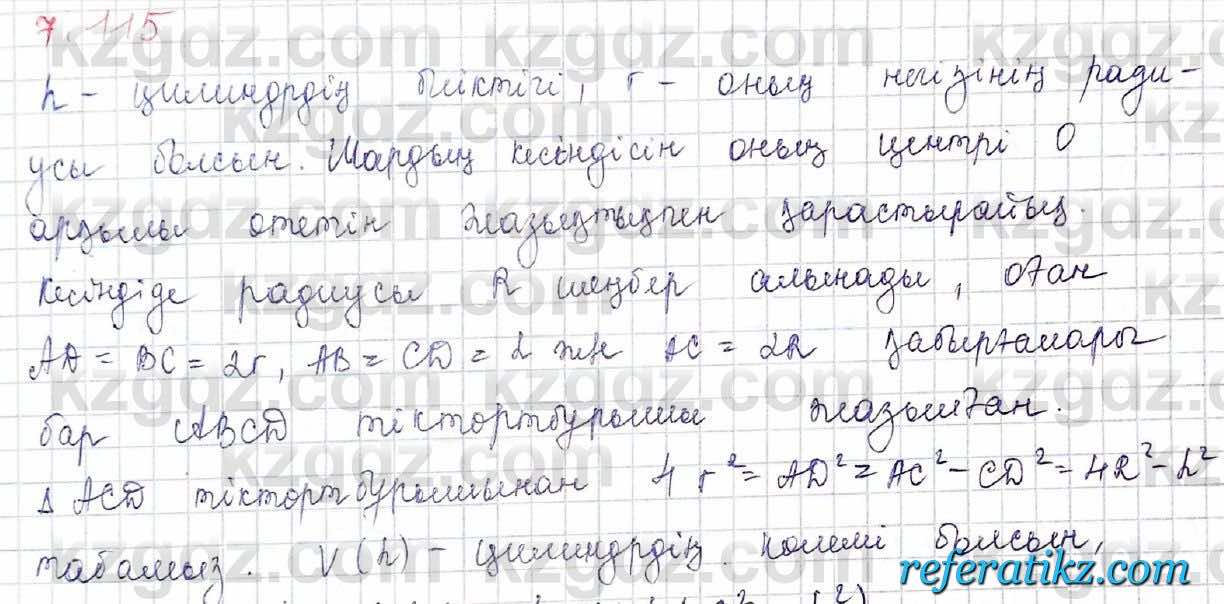 7.115
h – цилиндрдің биіктігі, r – оның негізінің ради-
усы болсын. Шардың кесіндісін оның центрі O
арқылы өтетін жазықтықпен қарастырайық.
Кесіндіде радиусы R шеңбер алынады, оған
AD = BC = 2r, AB = CD = h және AC = 2R қабырғалары
бар ABCD тіктөртбұрышы жазылған.
Δ ACD тіктөртбұрышынан 4r² = AD² = AC² – CD² = 4R² – h²
табамыз. V(h) – цилиндрдің көлемі болсын,
referatikz.com
kzgdz.com